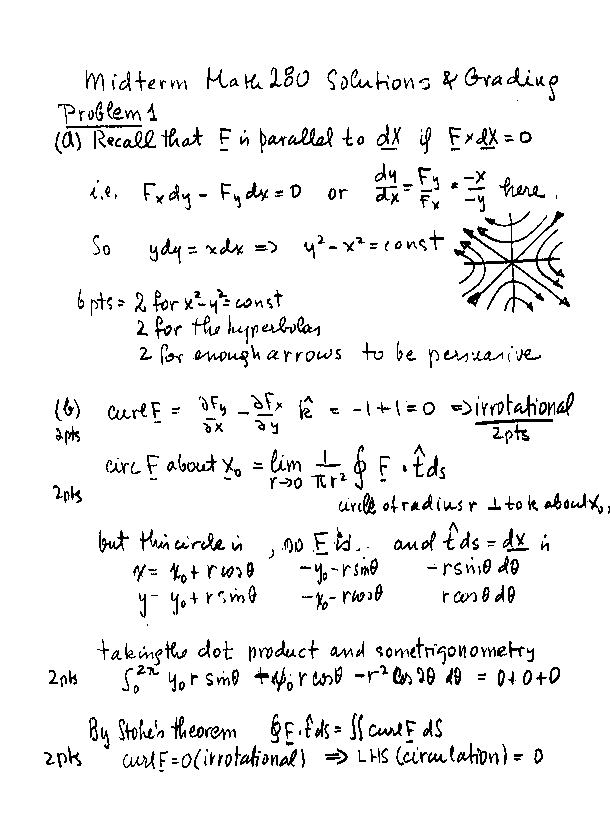 Midterm Math 280 Solutions & Grading
Problem 1
(a) Recall that F is parallel to dX if F×dX = 0
i.e. Fxdy - Fydx = 0 or dy/dx = Fy/Fx = -x/-y here.
So ydy = xdx => y² - x² = const
6 pts = 2 for x²-y²=const
2 for the hyperbolas
2 for enough arrows to be persuasive
(b) curl F = ∂Fy/∂x - ∂Fx/∂y k̂ = -1+1=0 => irrotational
2pts 2pts
circ F about X₀ = lim r→0 1/πr² ∮ F · t̂ds
2pts
circle of radius r ⊥ to k about X₀,
but this circle is , so F is .. and t̂ds = dx is
x = x₀ + r cosθ -y₀-rsinθ -rsinθ dθ
y = y₀ + r sinθ -x₀-rcosθ rcosθ dθ
taking the dot product and some trigonometry
2pts ∫₀²π y₀ r sinθ r cosθ -r² cos 2θ dθ = 0+0+0
By Stoke's theorem ∮F·t̂ds = ∬ curl F dS
2pts curl F = 0 (irrotational) => LHS (circulation) = 0